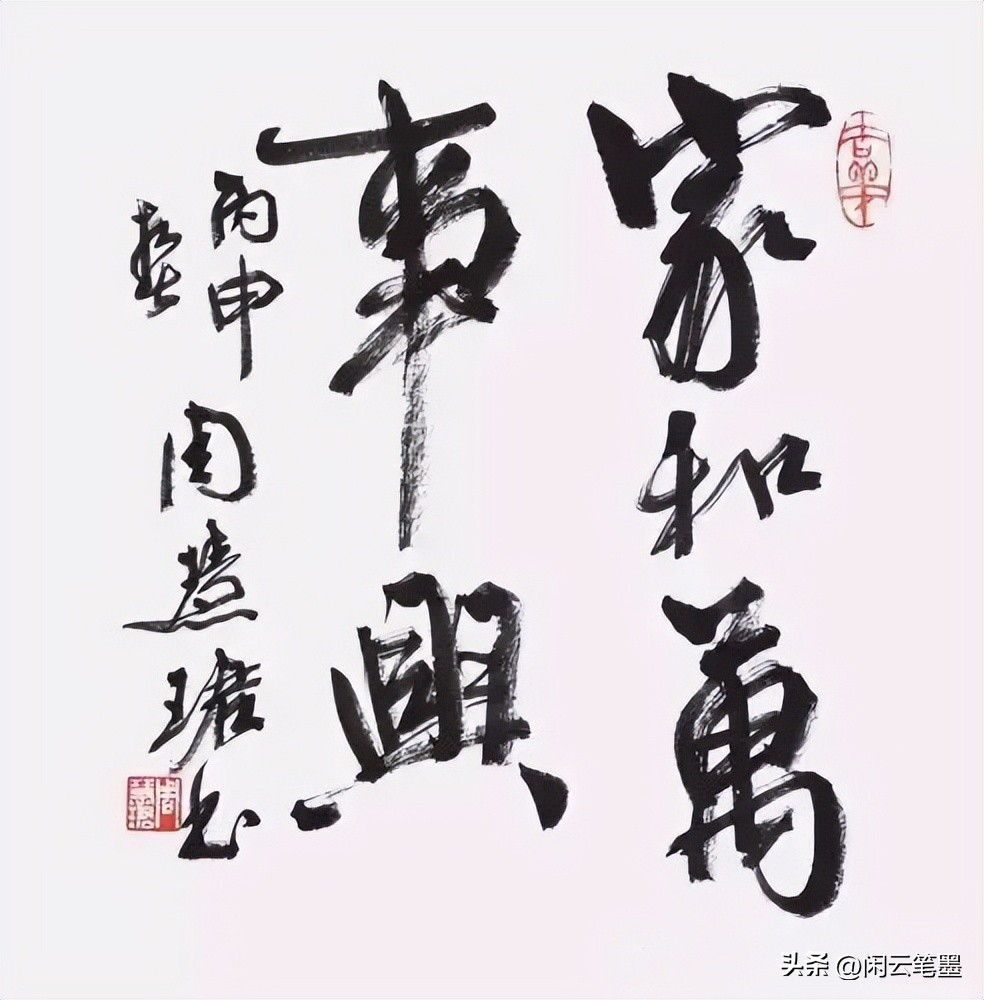 家和萬
事興
丙申
周慧珺书
周慧珺
头条 @闲云笔墨